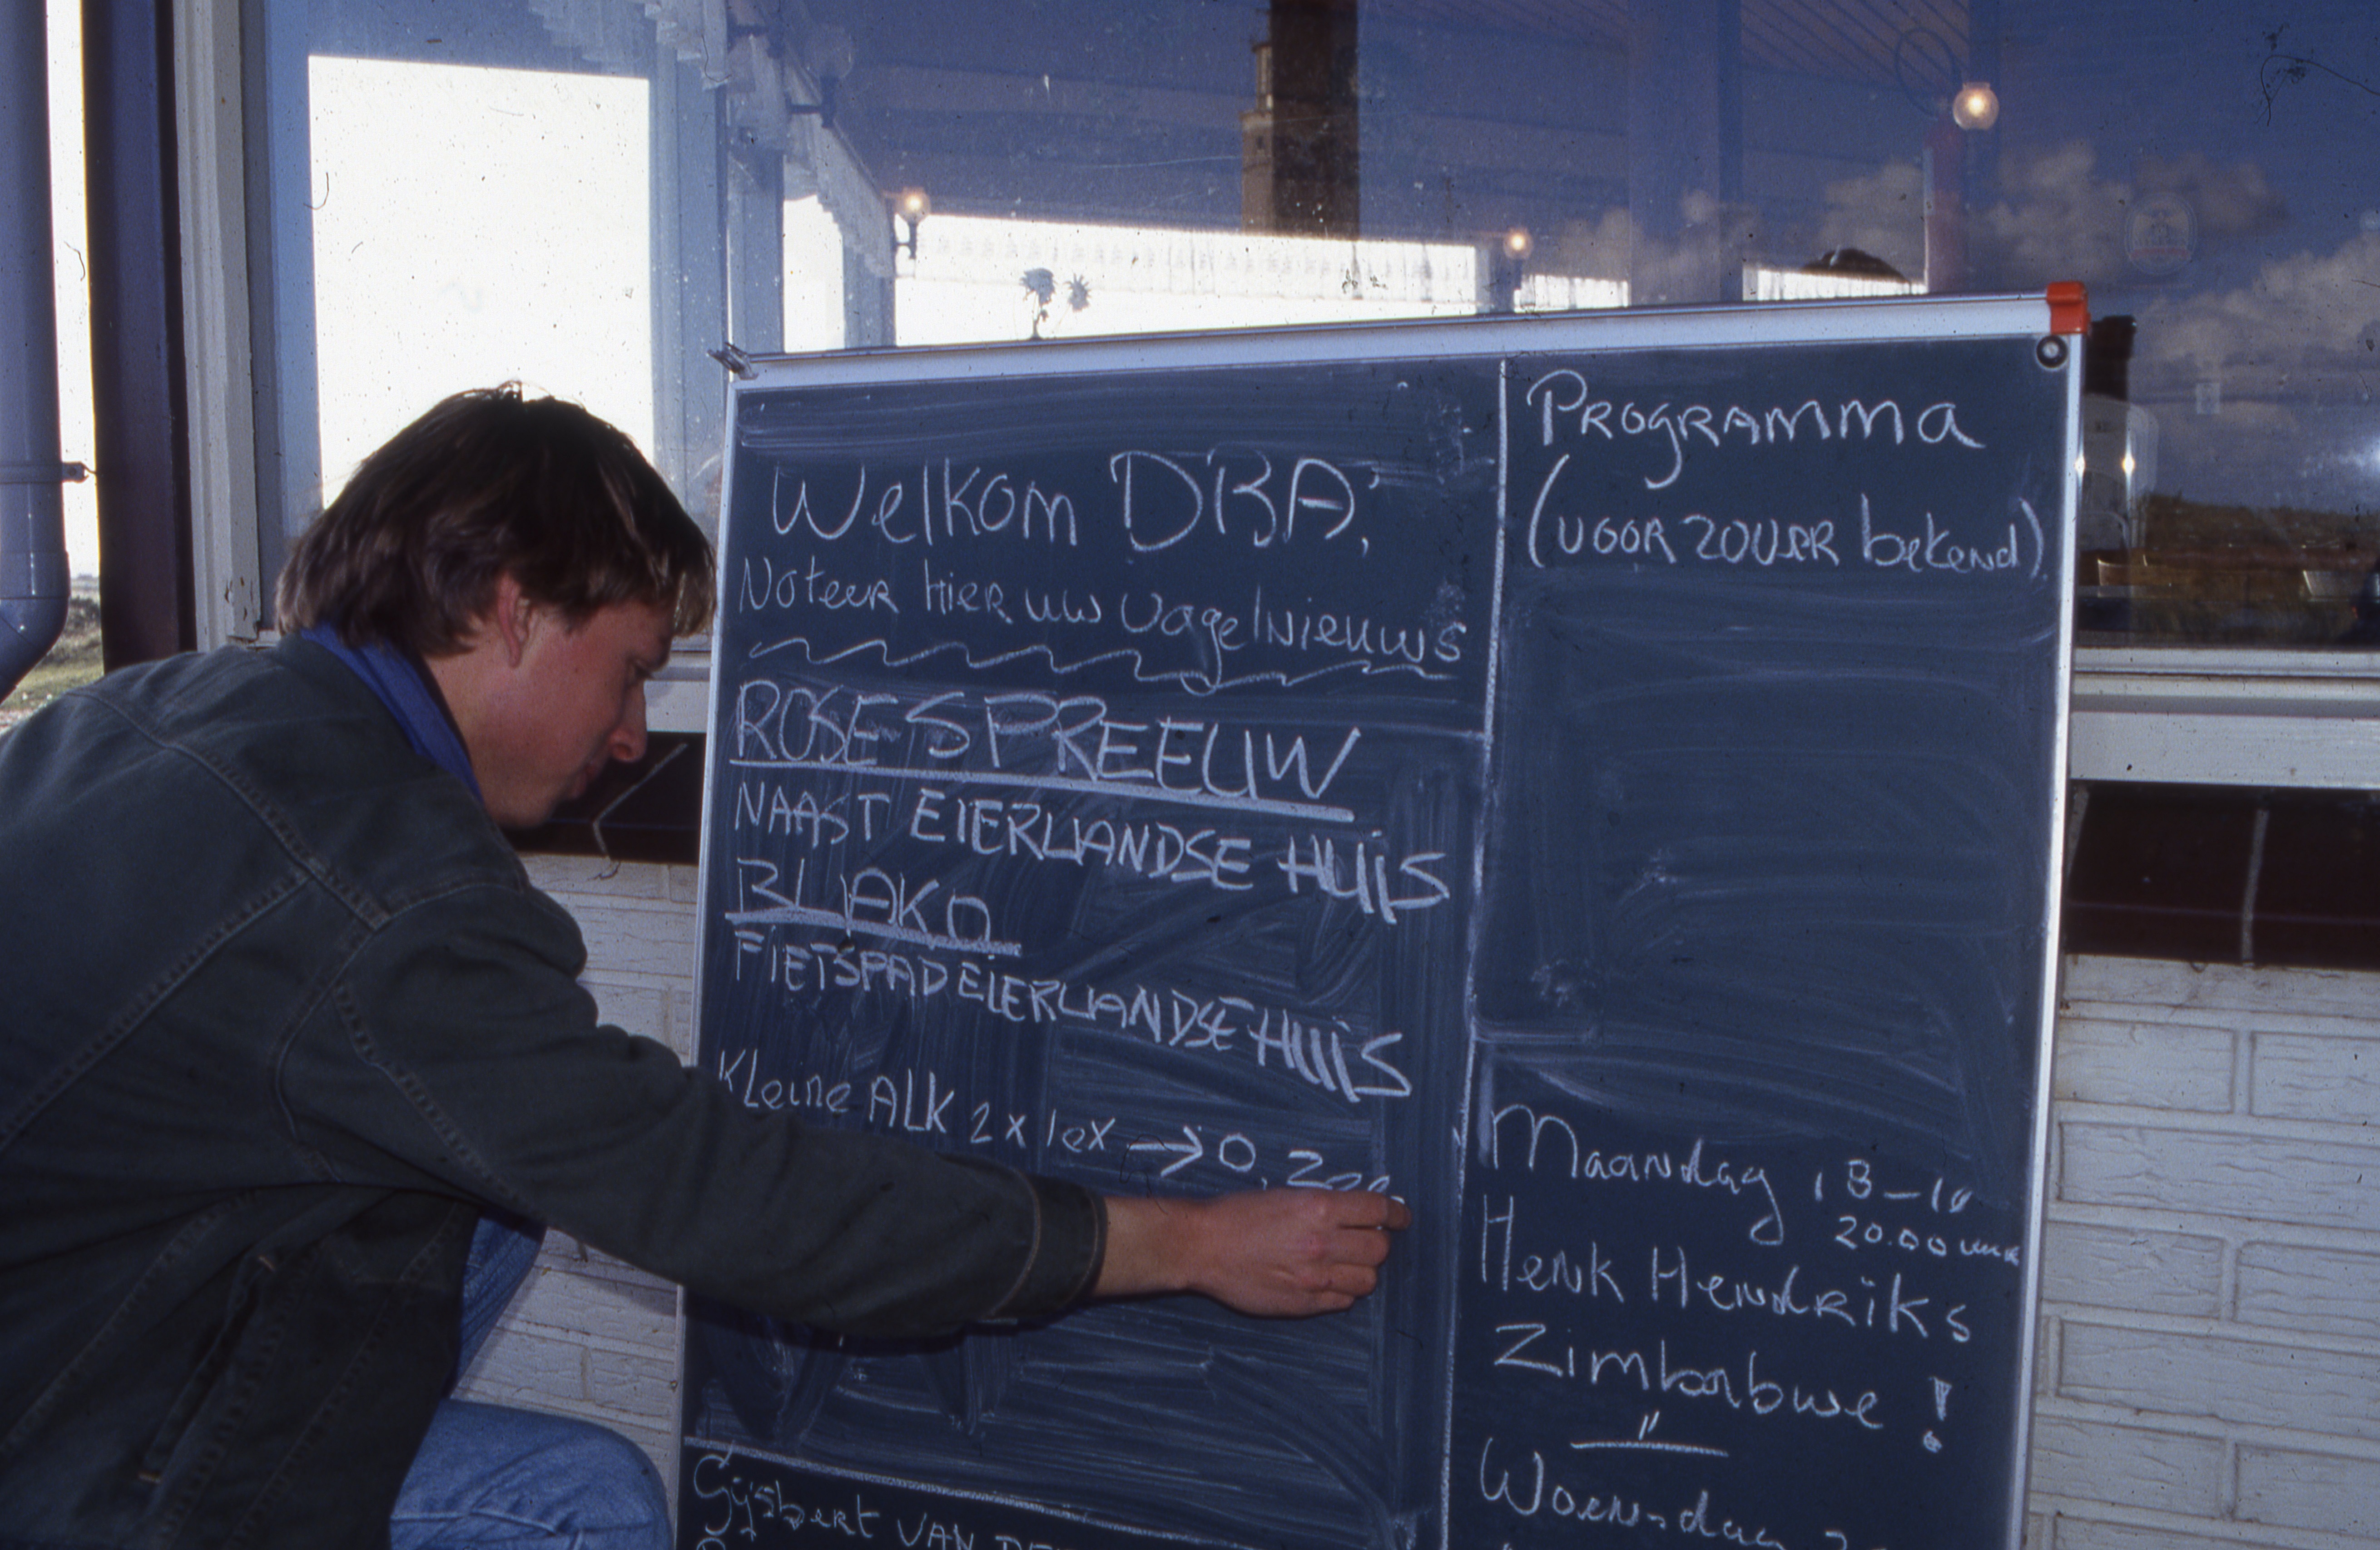 Welkom DBA,
Noteer hier uw vogelnieuws
ROSE SPREEUW
NAAST EIERLANDSE HUIS
BLAKO
FIETSPAD EIERLANDSE HUIS
Kleine ALK 2x 1ex → 0,
Gijsbert VAN
PROGRAMMA
(VOOR ZOVER bekend)
Maandag 18-10
20.00 uur
Henk Hendriks
Zimbabwe !
"
Woensdag